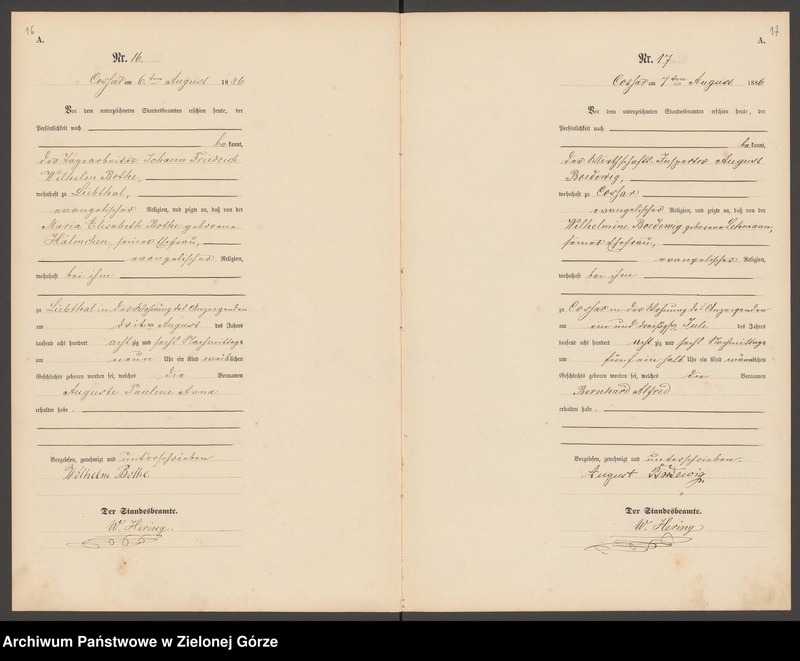 16
A.
Nr. 16.
Cossar am 6 ten August 1886
Vor dem unterzeichneten Standesbeamten erschien heute, der
Persönlichkeit nach
be kannt,
der Tagearbeiter Johann Friedrich
Wilhelm Bothe,
wohnhaft zu Liebthal,
evangelischer Religion, und zeigte an, daß von der
Maria Elisabeth Bothe geborene
Hälmchen, seiner Ehefrau,
evangelischer Religion,
wohnhaft bei ihm
zu Liebthal in der Wohnung des Anzeigenden
am dritten August des Jahres
tausend acht hundert acht zig und sechs Nachmittags
um neun Uhr ein Kind weiblichen
Geschlechts geboren worden sei, welches die Vornamen
Auguste Pauline Anna
erhalten habe.
Vorgelesen, genehmigt und unterschrieben
Wilhelm Bothe
Der Standesbeamte.
W. Hering.
17
A.
Nr. 17
Cossar am 7 ten August 1886
Vor dem unterzeichneten Standesbeamten erschien heute, der
Persönlichkeit nach
be kannt,
der Wirthschafts-Inspector August
Boedewig,
wohnhaft zu Cossar
evangelischer Religion, und zeigte an, daß von der
Wilhelmine Boedewig geborene Lehmann,
seiner Ehefrau,
evangelischer Religion,
wohnhaft bei ihm
zu Cossar in der Wohnung des Anzeigenden
am ein und dreißigsten Juli des Jahres
tausend acht hundert acht zig und sechs Nachmittags
um fünf ein halb Uhr ein Kind männlichen
Geschlechts geboren worden sei, welches die Vornamen
Bernhard Alfred
erhalten habe.
Vorgelesen, genehmigt und unterschrieben.
August Bödewig
Der Standesbeamte.
W. Hering
Archiwum Państwowe w Zielonej Górze